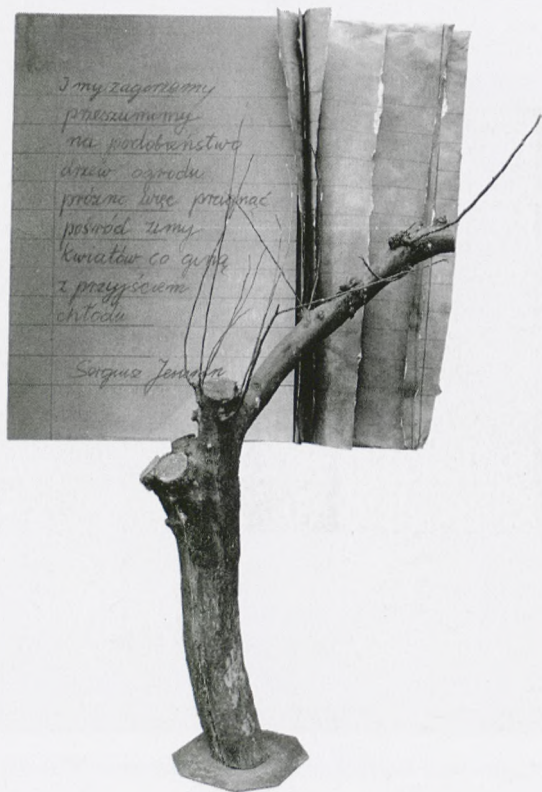 I my zagorzamy
przeszumimy
na podobieństwo
drzew ogrodu
próżno więc przeginać
pośród zimy
kwiatów co giną
z przyjściem
chłodu
Sergiusz Jesienin